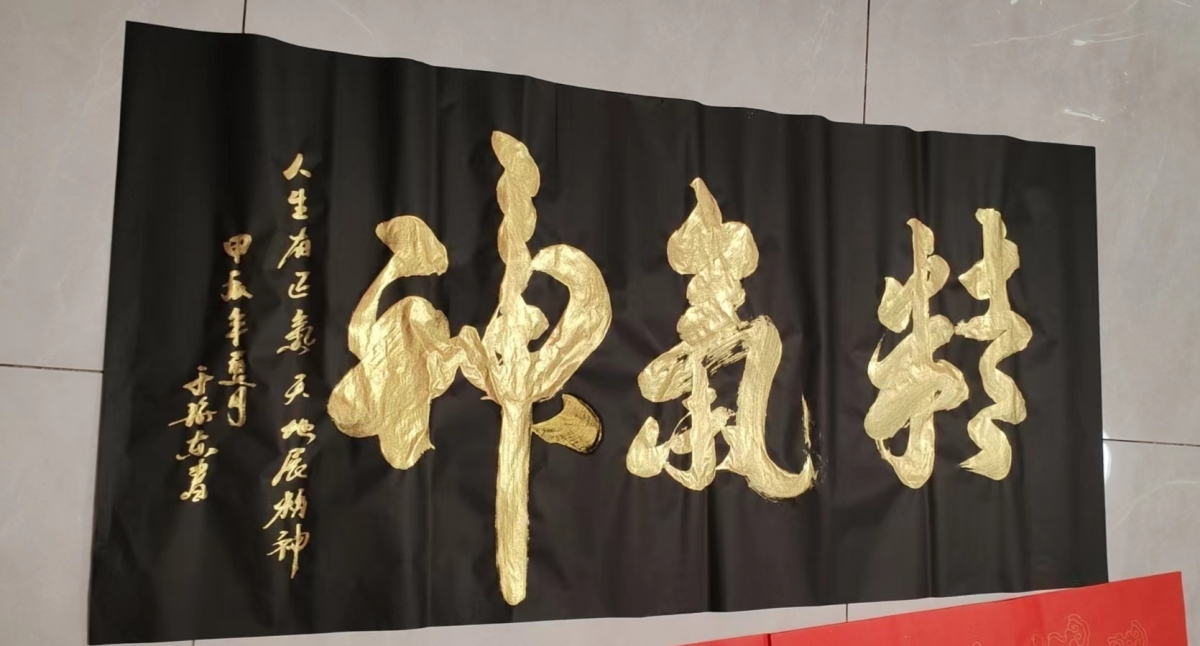 精氣神
人生有正氣天地展精神
甲辰年夏月